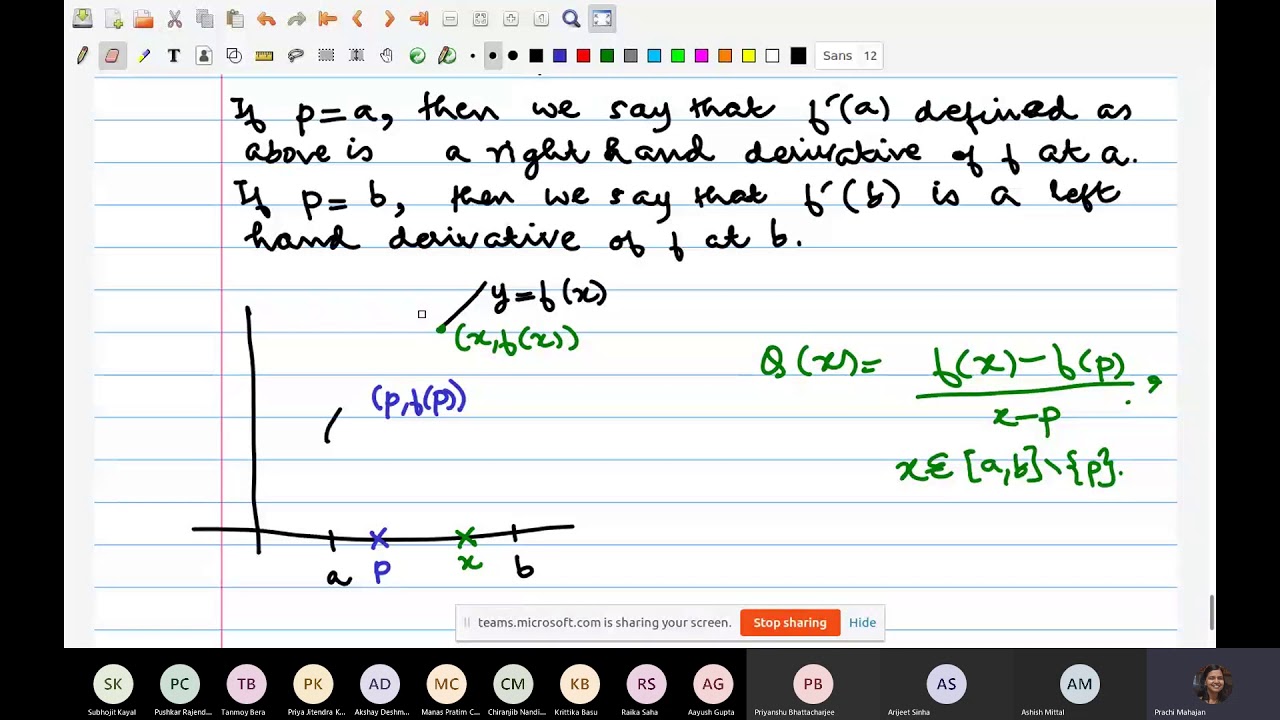 Sans 12
If p=a, then we say that f'(a) defined as
above is a right hand derivative of f at a.
If p=b, then we say that f'(b) is a left
hand derivative of f at b.
y=f(x)
(x,f(x))
(p,f(p))
Q(x)= f(x)-f(p)
x-p ,
x∈[a,b]\{p}.
a p x b
teams.microsoft.com is sharing your screen. Stop sharing Hide
SK PC TB PK AD MC CM KB RS AG PB AS AM
Subhojit Kayal Pushkar Rajend... Tanmoy Bera Priya Jitendra K... Akshay Deshm... Manas Pratim C... Chiranjib Nandi... Krittika Basu Raika Saha Aayush Gupta Priyanshu Bhattacharjee Arijeet Sinha Ashish Mittal Prachi Mahajan